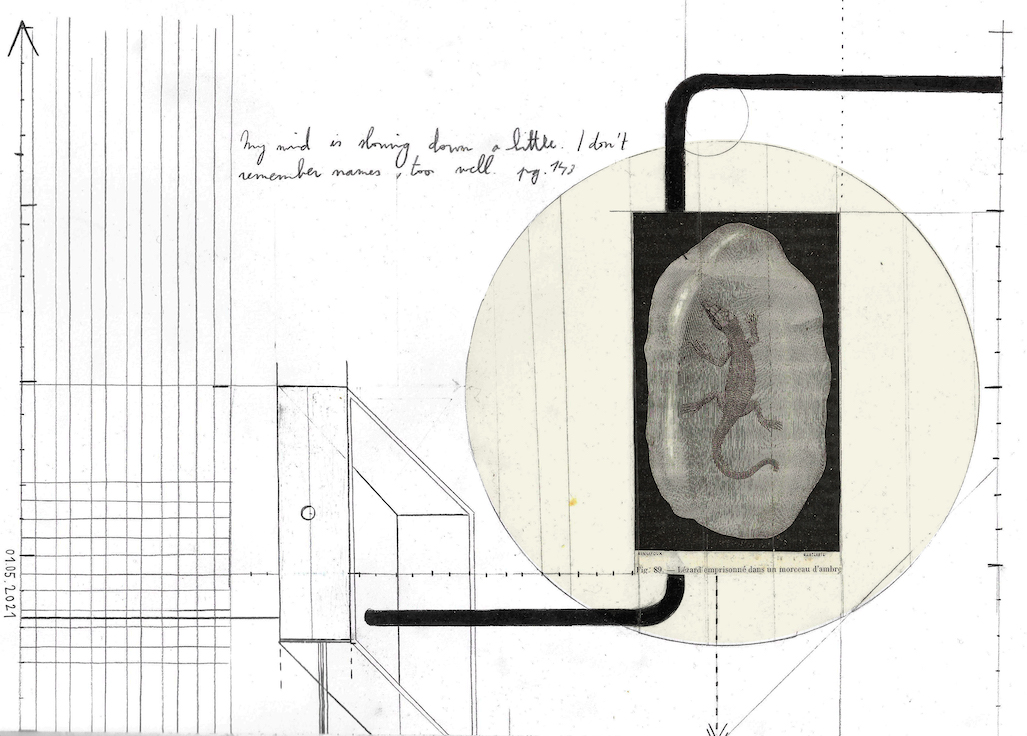 My mind is slowing down a little. I don't
remember names, too well. pg. 143
Fig. 89. — Lézard emprisonné dans un morceau d'ambre
01.05.2021